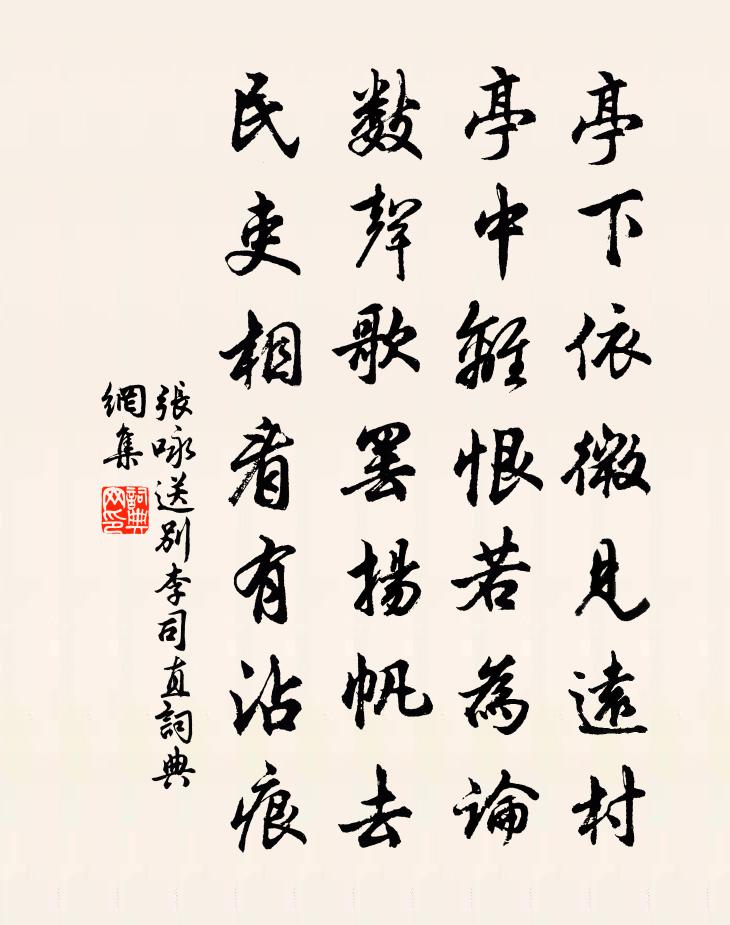 亭下依微見遠村
亭中離恨若為論
數聲歌罢揚帆去
民吏相看有沾痕
張咏送别李司直詞典
網集
詞典
网印